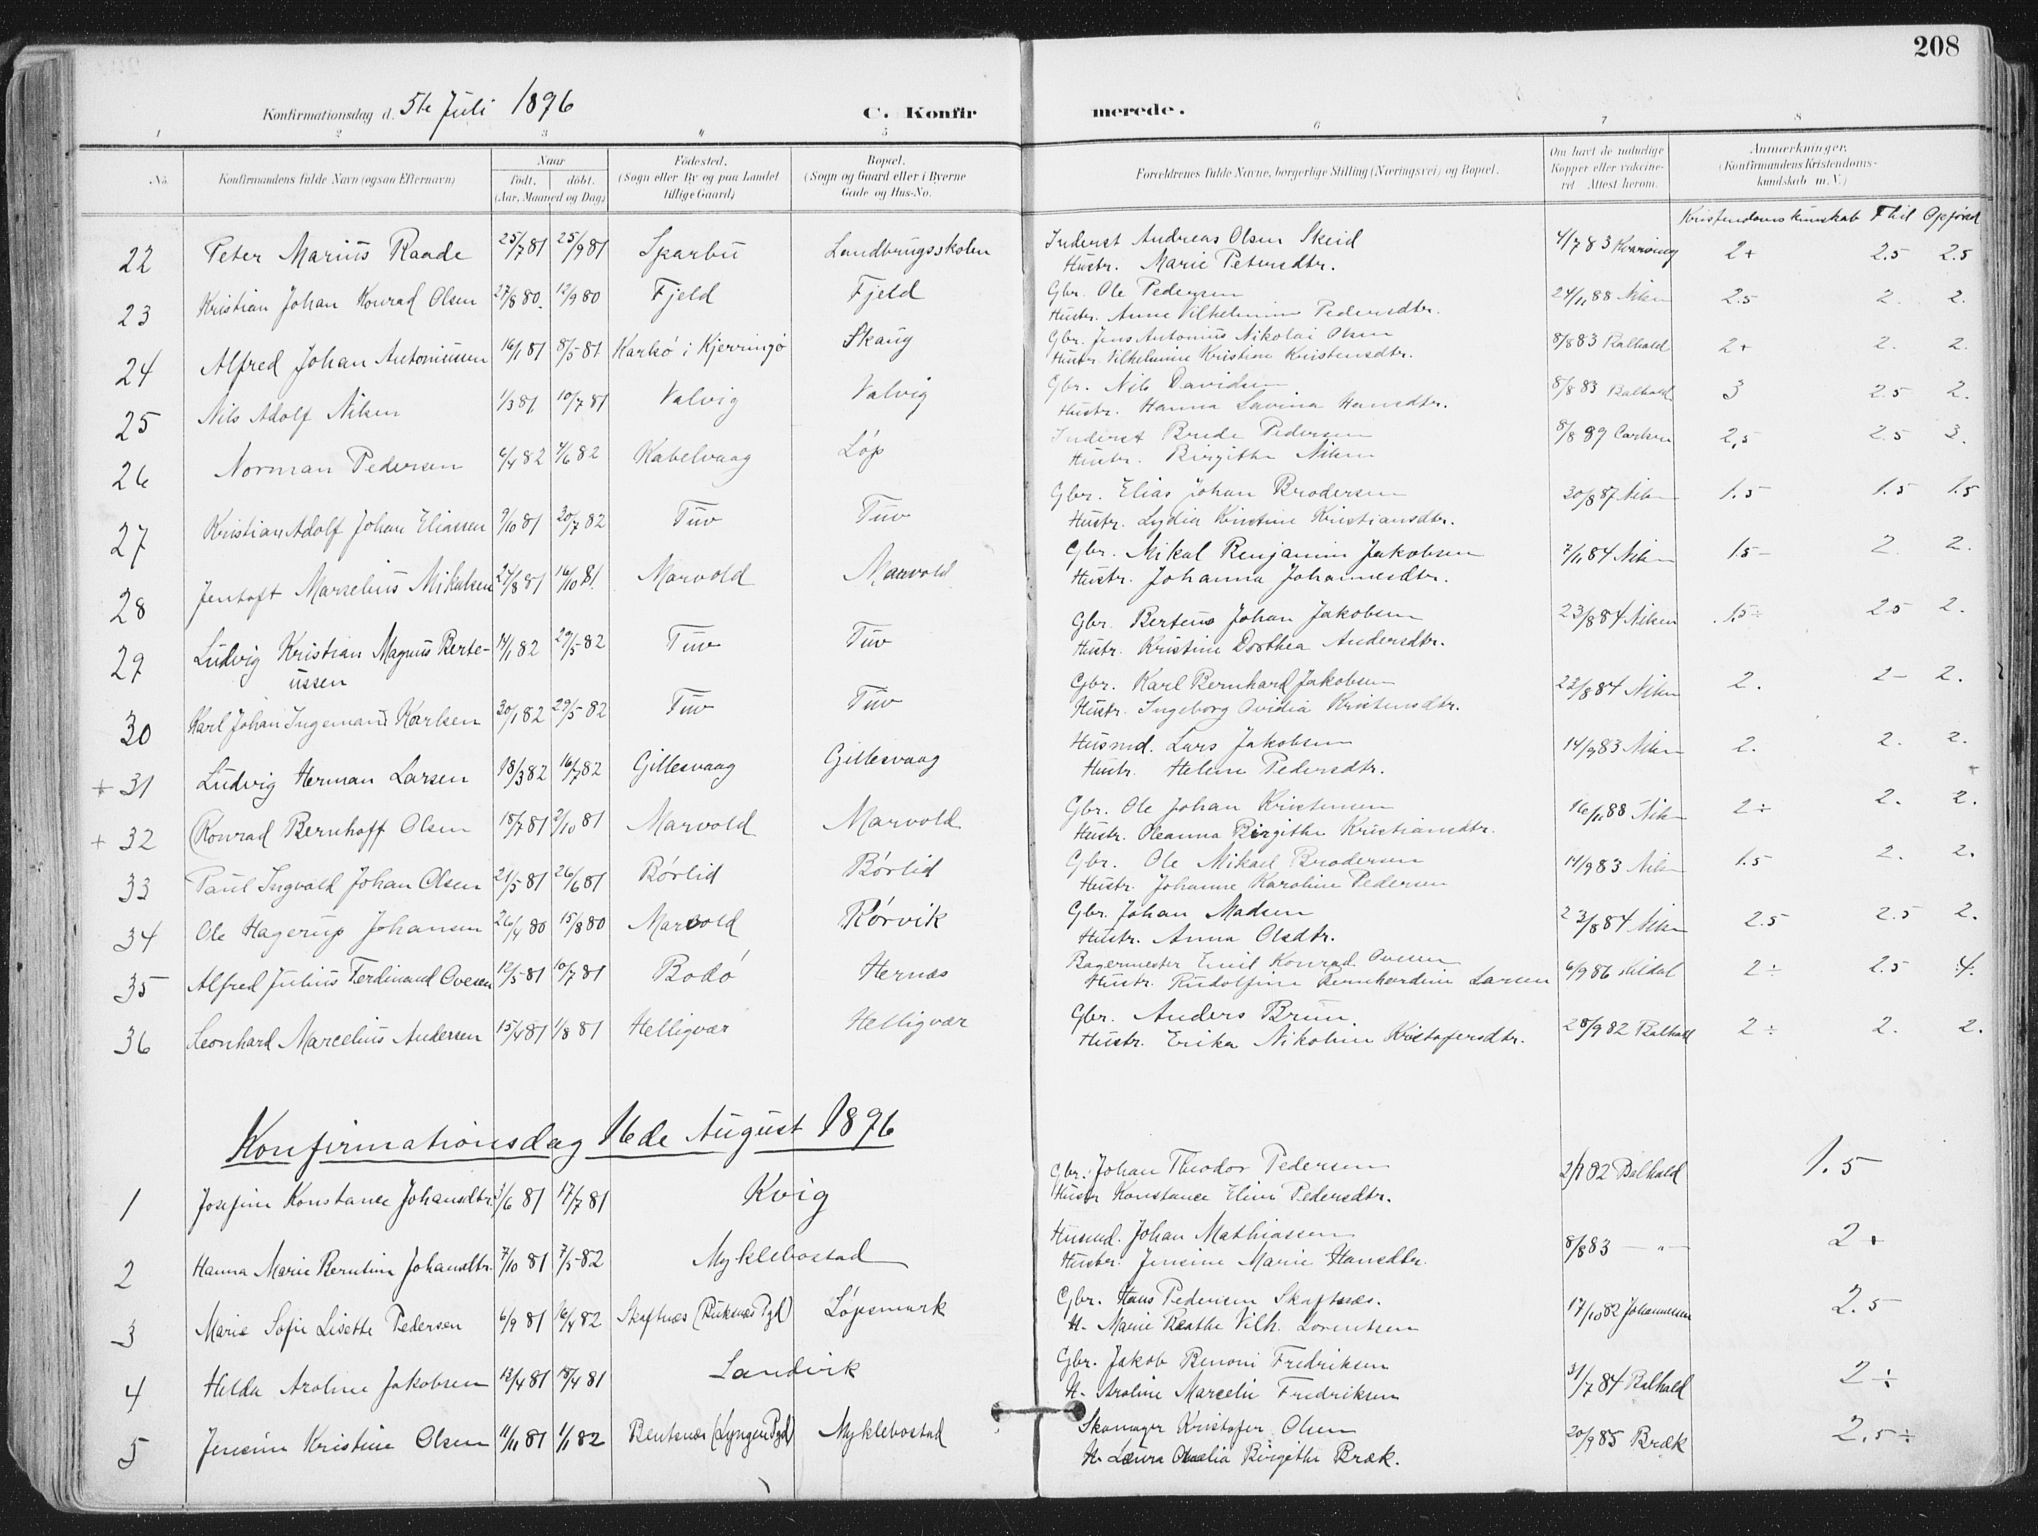 208
Konfirmationsdag d. 5te Juli 1896
C. Konfirmerede.
1 2 3 4 5 6 7 8
No. Konfirmandens fulde Navn (ogsaa Efternavn) Naar födt. döbt. (Aar, Maaned og Dag) Födested. (Sogn eller By og paa Landet tillige Gaard) Bopæl. (Sogn og Gaard eller i Byerne Gade og Hus-No. Forældrenes fulde Navne, borgerlige Stilling (Næringsvei) og Bopæl. Om havt de naturlige Kopper eller vakcineret Attest herom. Anmærkninger. (Konfirmandens Kristendomskundskab m. V.)
Kristendomskunskab Flid Opførsel
22 Peter Marius Raade 25/7 81 25/9 81 Sparbu Landbrugsskolen Inderst Andreas Olsen Skeid 4/7 83 2+ 2.5 2.5
Hustr. Marie Petersdtr.
23 Kristian Johan Konrad Olsen 27/8 80. 12/9 80 Fjeld Fjeld Gbr. Ole Pedersen 24/11 88 Nilsen 2.5 2. 2.
Hustr. Anne Vilhelmine Pedersdtr.
24 Alfred Johan Antoniussen 16/1 81 8/5 81 Karlsö i Kjerringö Skaug Gbr. Jens Antonius Nikolai Olsen 8/8 83 Balhald 2+ 2. 2.
Hustr. Vilhelmine Kristine Kristensdtr.
25 Nils Adolf Nilsen 1/3 81 10/7 81 Valvig Valvig Gbr. Nils Davidsen 8/8 83 Balhald 3 2.5 2.
Hustr. Hanna Lavina Hansdtr.
26 Norman Pedersen 6/4 82 4/6 82 Kabelvaag Løp Inderst Brude Pedersen 8/8 89 Carlsen 2,5 2.5 3.
Hustr. Birgithe Nilsen
27 Kristian Adolf Johan Eliassen 9/10 81 30/7 82 Tuv Tuv Gbr. Elias Johan Brodersen 30/8 87 Nilsen 1.5 1.5 1.5
Hustr. Lydia Kirstine Kristiansdtr.
28 Jentoft Marselius Mikalsen 24/8 81 16/10 81. Marvold Marvold Gbr. Mikal Benjamin Jakobsen 7/11 84 Nilsen 1.5 - 2. 2.
Hustr. Johanna Johannesdtr.
29 Ludvig Kristian Magnus Berteussen 14/1 82 29/5 82 Tuv Tuv Gbr. Berteus Johan Jakobsen 23/8 84 Nilsen 1.5 ÷ 2.5 2.
Hustr. Kristine Dorthea Andersdtr.
30 Karl Johan Ingemand Karlsen 30/1 82 29/5 82 Tuv Tuv Gbr. Karl Bernhard Jakobsen 23/8 84 Nilsen 2. 2- 2.
Hustr. Ingeborg Ovidia Kristensdtr.
+ 31 Ludvig Herman Larsen 18/3 82 16/7 82 Gillesvaag Gillesvaag Husmd. Lars Jakobsen 14/9 83 Nilsen 2. 2. 2.
Hustr. Helene Pedersdtr.
+ 32 Konrad Bernhoff Olsen 18/7 81 2/10 81 Marvold Marvold Gbr. Ole Johan Kristensen 16/11 88 Nilsen 2 ÷ 2. 2.
Hustr. Oleanna Birgithe Kristiansdtr.
33 Paul Ingvald Johan Olsen 21/5 81 26/6 81 Børlid Børlid Gbr. Ole Mikael Brodersen 14/9 83 Nilsen 1.5 2. 2.
Hustr. Johanne Karoline Pedersen
34 Ole Hagerup Johansen 26/4 80 15/8 80 Marvold Rørvik Gbr. Johan Madsen 23/8 84 Nilsen 2.5 2.5 2.
Hustr. Anna Olsdtr.
35 Alfred Julius Ferdinand Ovesen 12/5 81 10/7 81 Bodö Hernæs Bagermester Emil Konrad Ovesen 6/9 86 Kildal 2 ÷ 2.5 4.
Hustr. Rudolfine Bernhardine Larsen
36 Leonhard Marcelius Andersen 15/4 81 1/8 81 Helligvær Helligvær Gbr. Anders Bruun. 28/9 82 Balhald 2 ÷ 2. 2.
Hustr. Erika Nikoline Kristofersdtr.
Konfirmationsdag 16de August 1896
1 Josefine Konstance Johansdtr. 3/6 81 17/7 81 Kvig Gbr. Johan Theodor Pedersen 2/1 82 Balhald 1.5
Hustr Konstance Eline Pedersdtr.
2 Hanna Marie Berntine Johansdtr. 7/10 81 7/5 82 Myklebostad Husmd. Johan Mathiassen 8/8 83 — " — 2+
Hustr. Jensine Marie Hansdtr.
3 Marie Sofie Lisette Pedersen 6/9 81 16/4 82 Skaftnæs (Buksnæs Pgd) Løpsmark Gbr. Hans Pedersen Skaftnæs. 17/10 82 Johannessen 2.5
H. Marie Beathe Vilh. Lorentsen
4 Helda Aroline Jakobsen 12/4 81 18/4 81 Landvik Gbr. Jakob Benoni Fredriksen 31/7 84 Balhald 2 ÷
H. Aroline Marcelie Fredriksen
5 Jensine Kristine Olsen 11/11 81 1/1 82 Bentsnæs (Lyngen Pgd) Myklebostad Skomager Kristofer Olsen 20/9 85 Bræk 2.5 ÷
H. Laura Birgithe Bræk.